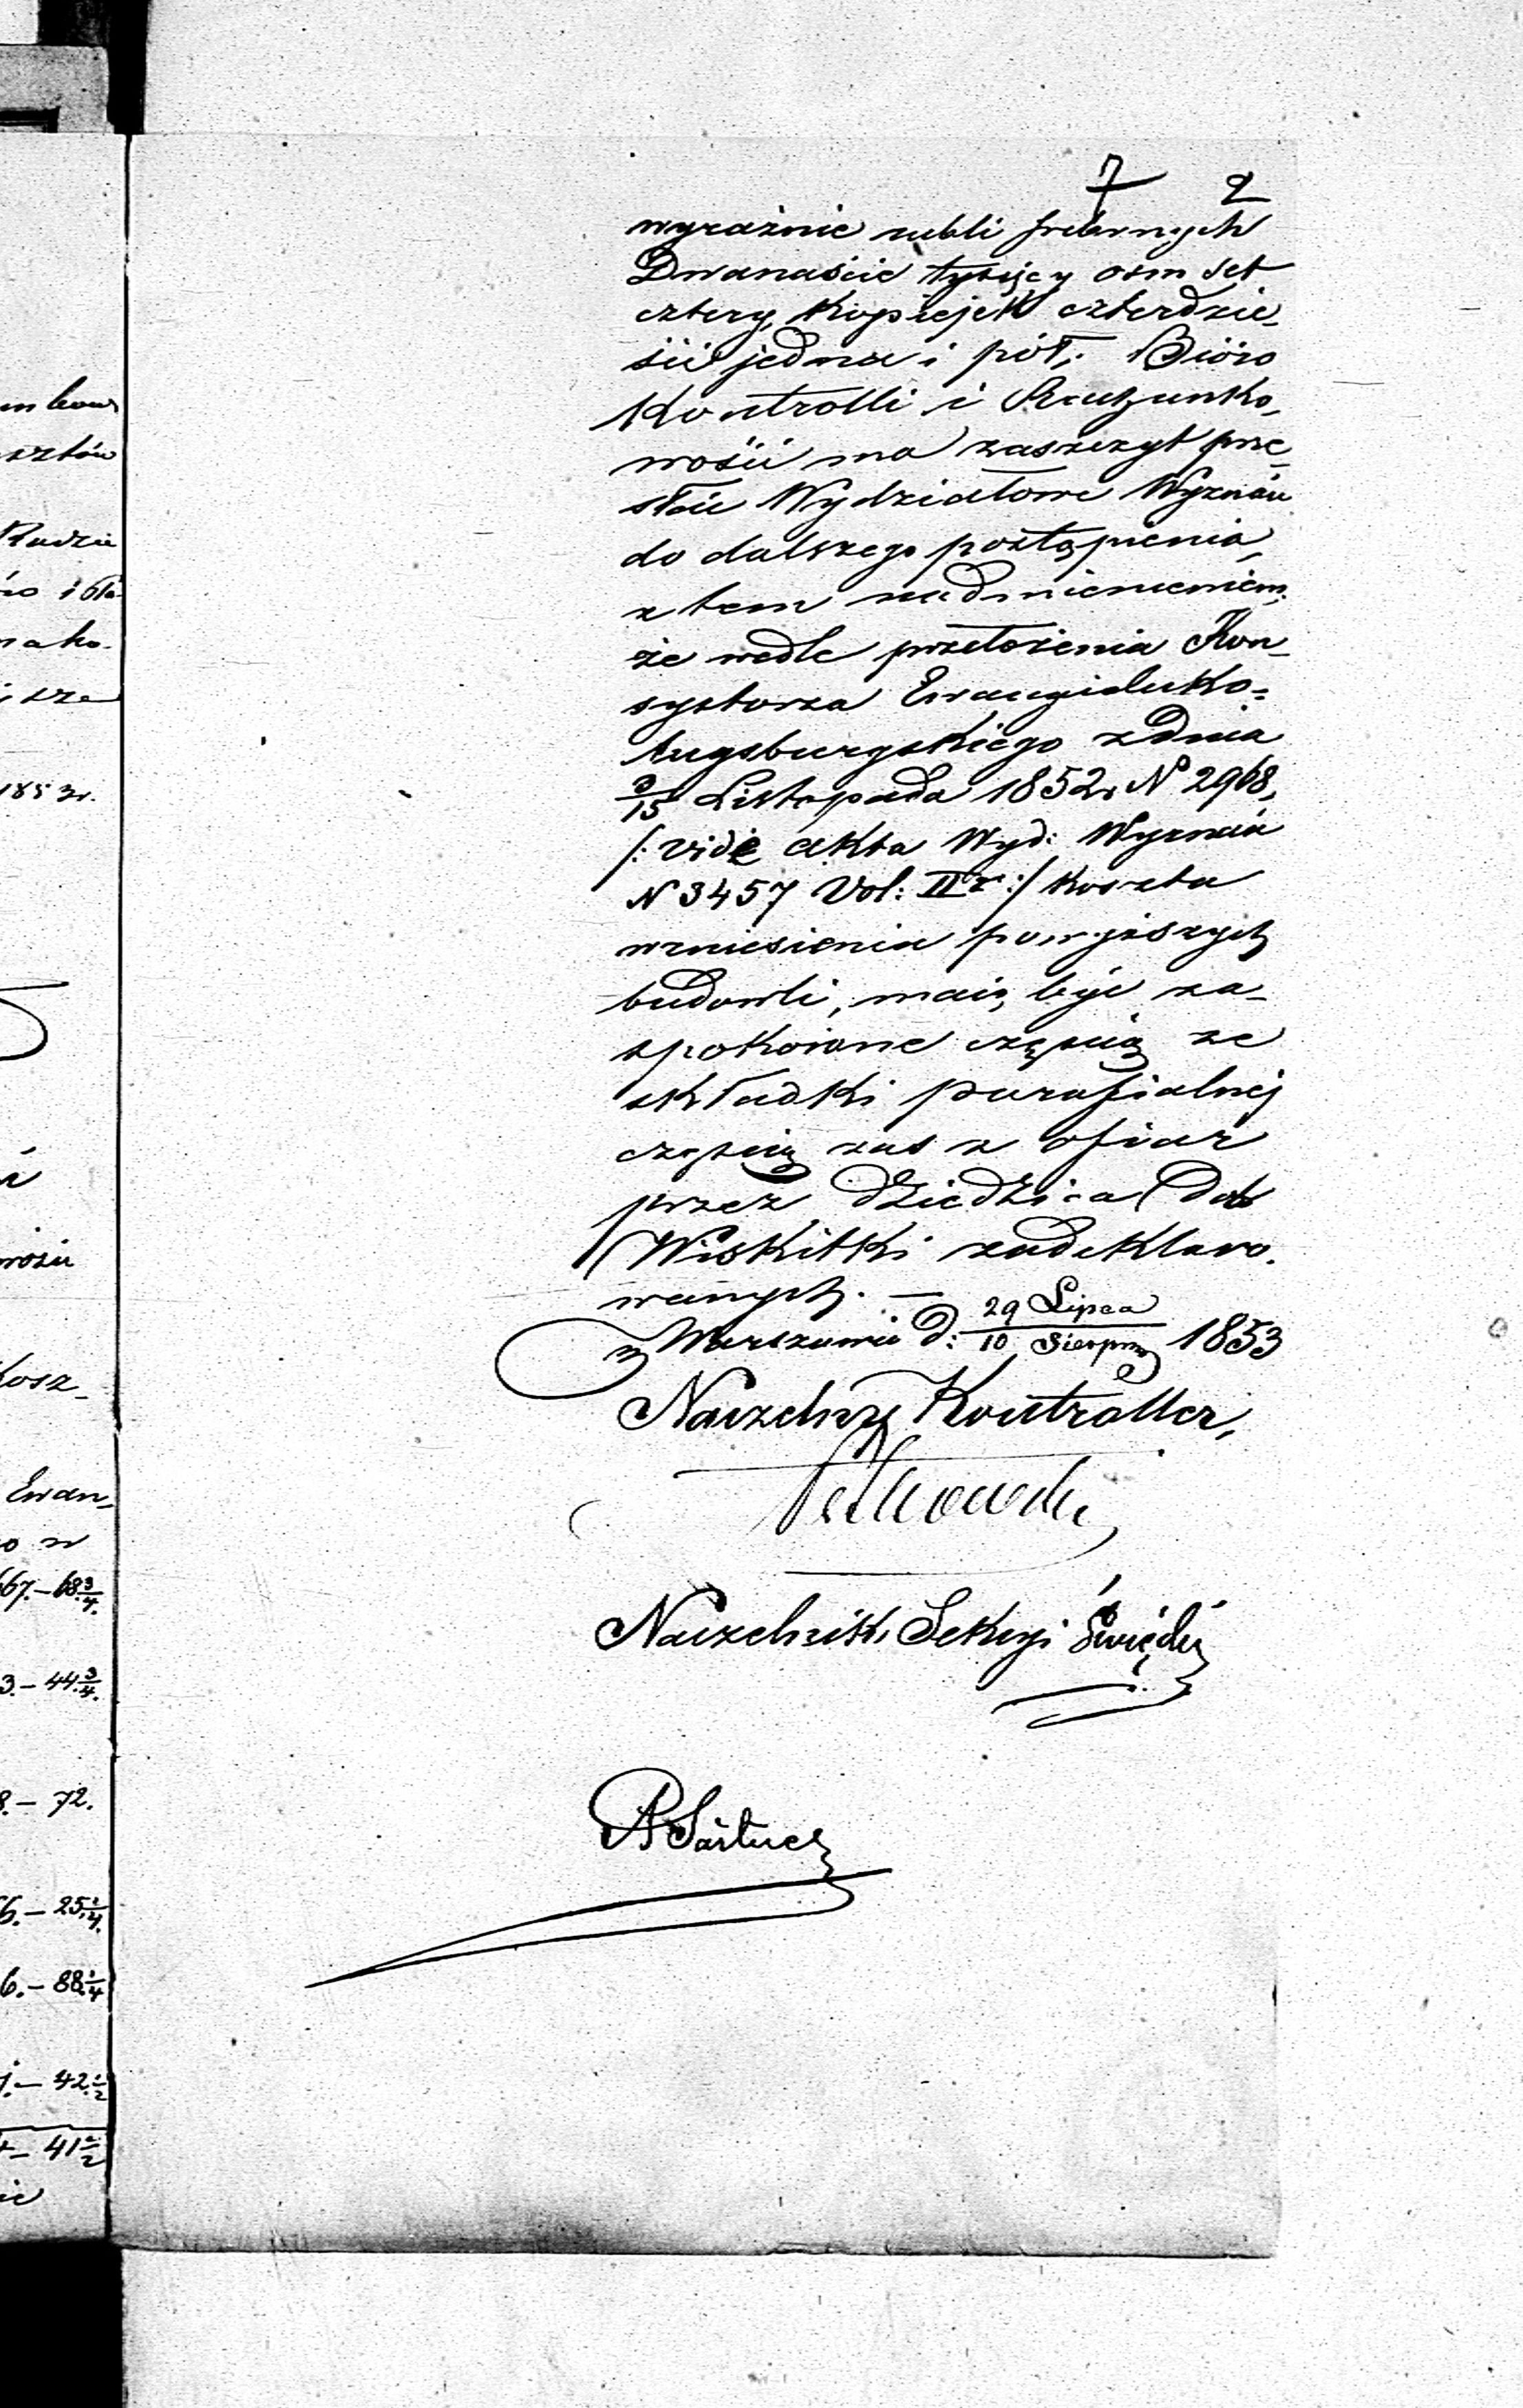 7 2
wyraźnie rubli srebrnych
Dwanaście tysięcy ośm set
cztery, Kopiejek czterdzie-
ści jedna i pół, Bióro
Kontrolli i Rachunko-
wości ma zaszczyt prze-
słać Wydziałowi Wyznań
do dalszego postąpienia,
z tem nadmienieniem,
że wedle przełożenia Kon-
systorza Ewangielicko-
Augsburgskiego z dnia
3/15 Listopada 1852 r. N 2968,
/: vide akta Wyd: Wyznań
N 3457 Vol: II :/ koszta
wzniesienia powyższych
budowli, maią być za-
spokoione częścią ze
składki parafialnej
częścią zaś z ofiar
przez Dziedzica Dób
Wiskitki zadeklaro-
wanych. —
w Warszawie d: 29 Lipca / 10 Sierpnia 1853
Naczelny Kontroller,
Naczelnik Sekcyi
ści
1853 r.
Kosz-
Ewan-
67.–68 3/4.
3.–44 3/4.
8.–72.
6.–25 1/4.
6.–88 1/4
1.–42 1/2
4–41 1/2